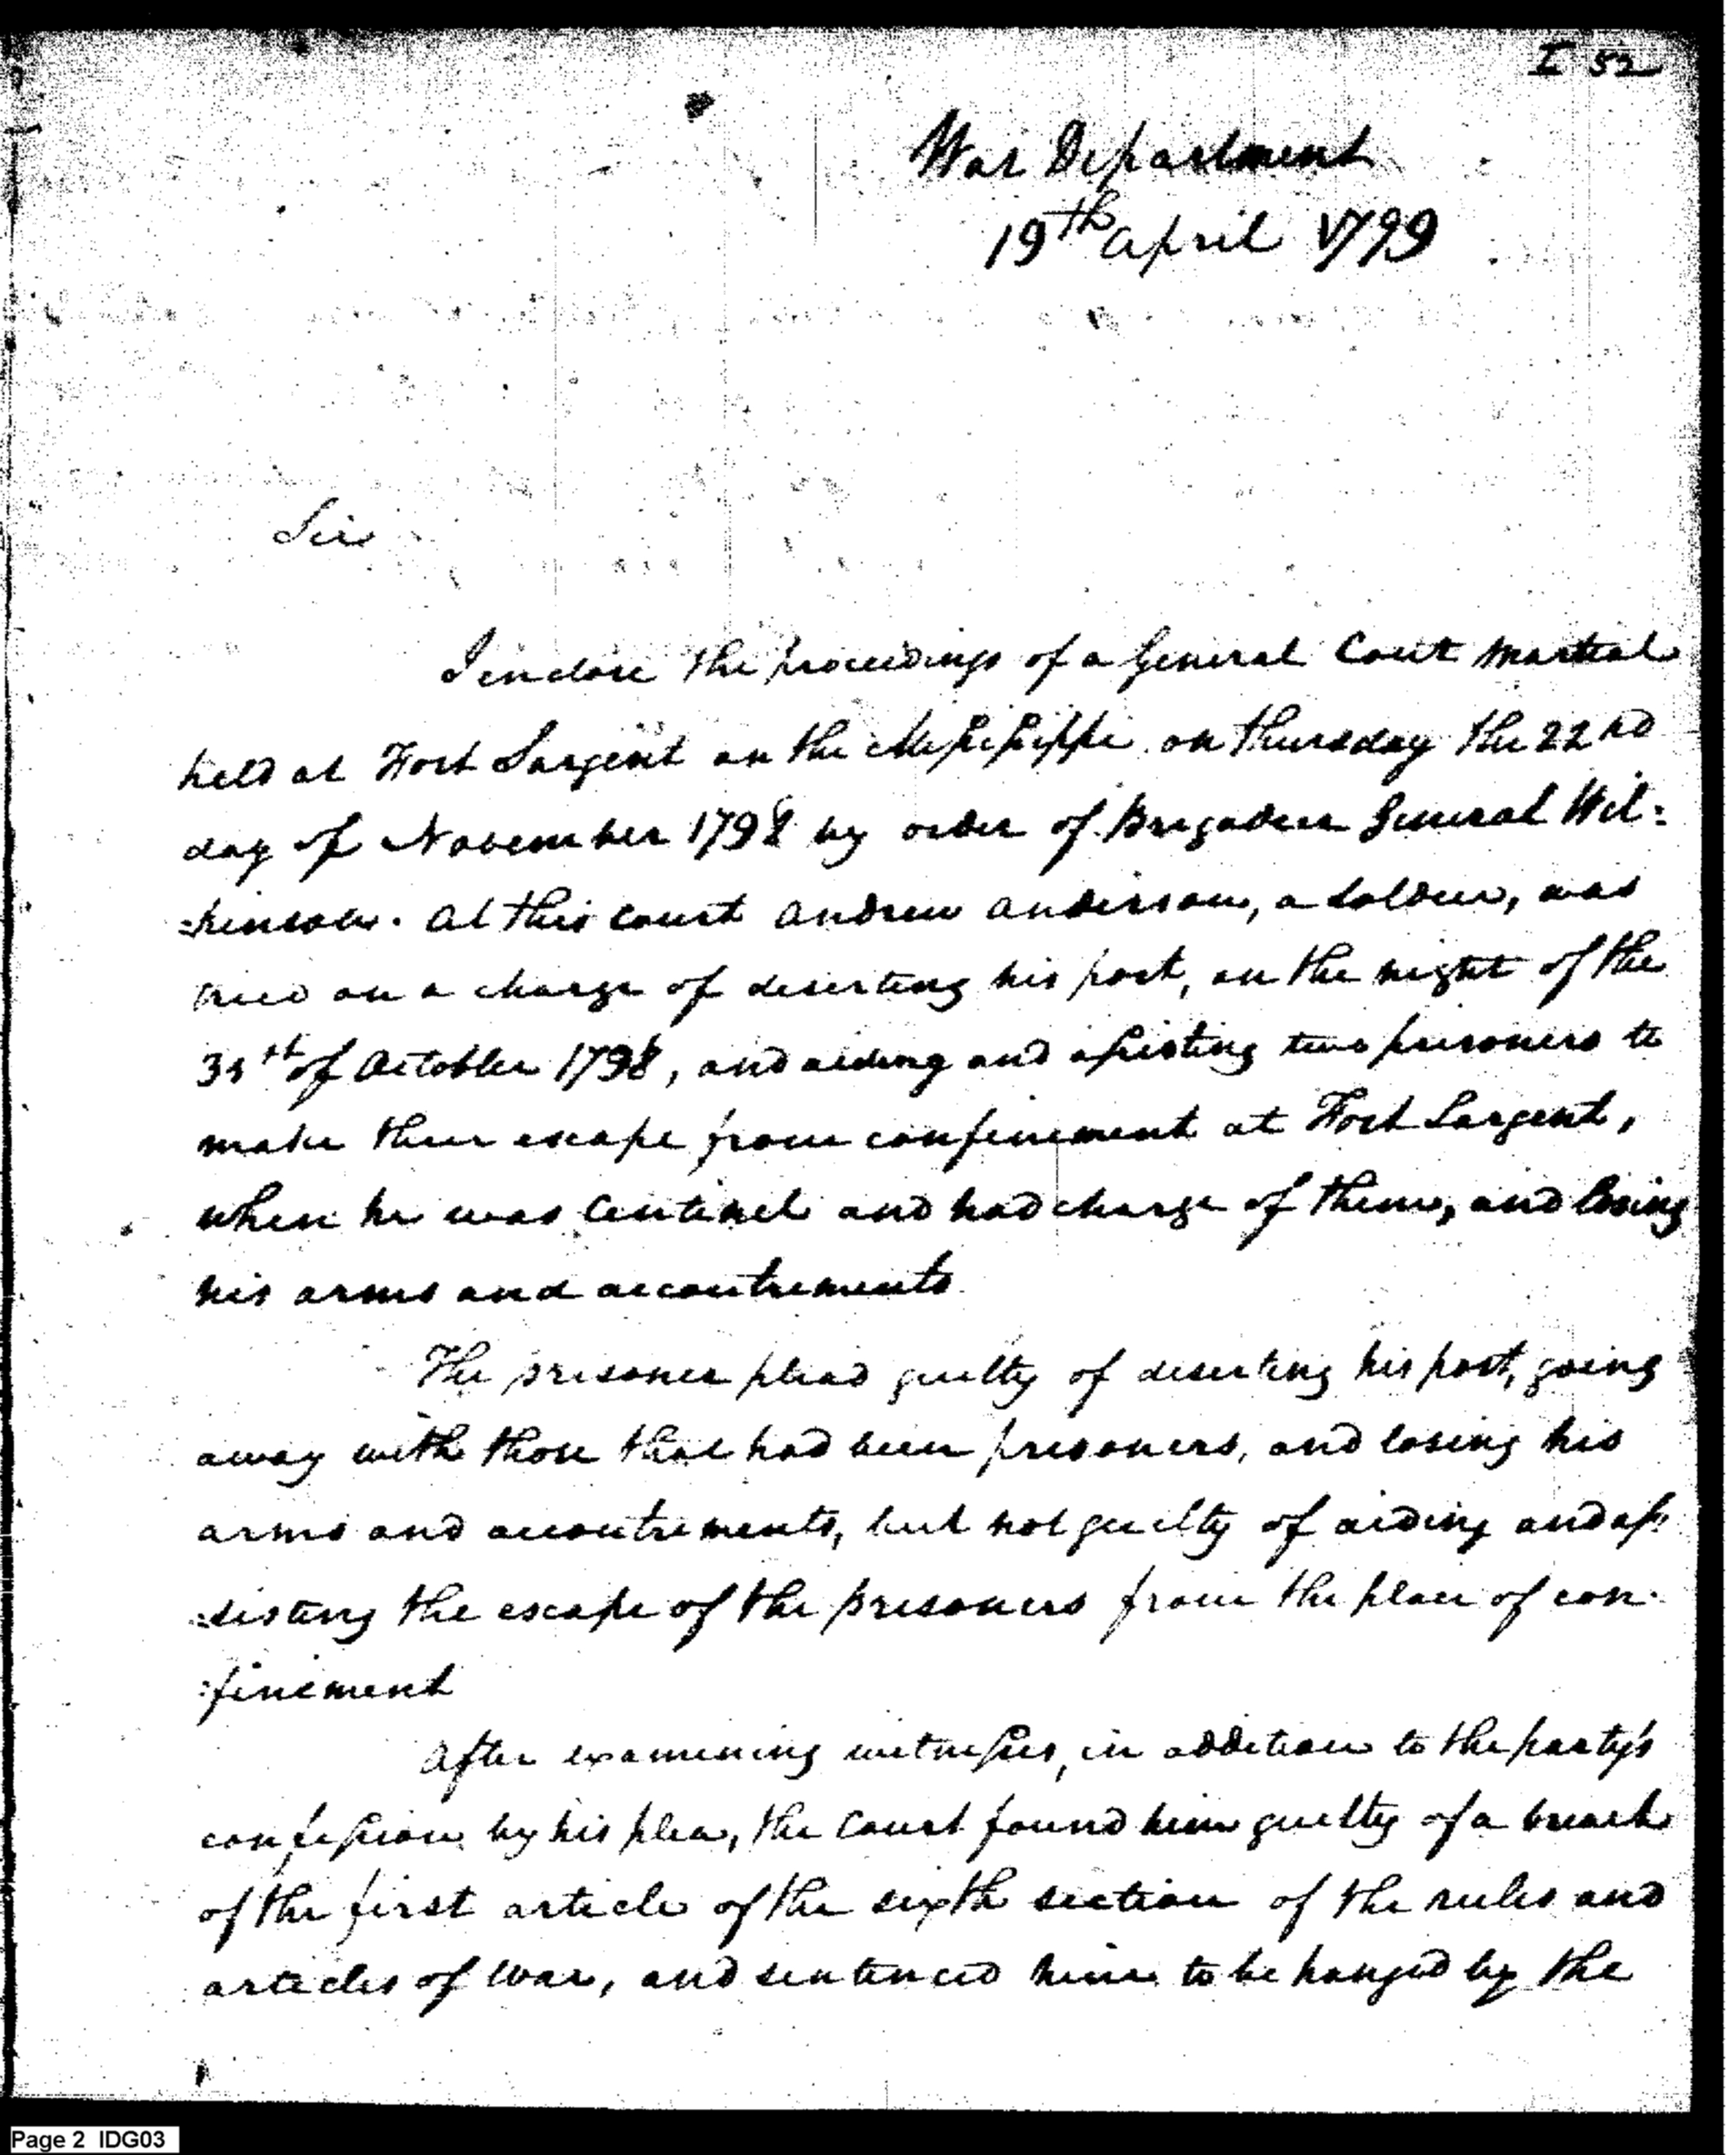 I 52
War Department
19th April 1799
Sir
I enclose the proceedings of a General Court Martial
held at Fort Sargent on the Missisippi on thursday the 22nd
day of November 1798 by order of Brigadier General Wil:
:kinson. At this Court Andrew Anderson, a Soldier, was
tried on a charge of deserting his post, on the night of the
31st of October 1798, and aiding and assisting two prisoners to
make their escape from confinement at Fort Sargent,
when he was Centinel and had charge of them, and losing
his arms and accoutrements
The prisoner plead guilty of deserting his post, going
away with those that had been prisoners, and losing his
arms and accoutrements, but not guilty of aiding and as:
:sisting the escape of the prisoners from the place of con:
:finement
After examining witnesses, in addition to the party's
confession by his plea, the Court found him guilty of a breach
of the first article of the sixth section of the rules and
articles of War, and sentenced him to be hanged by the
Page 2 IDG03